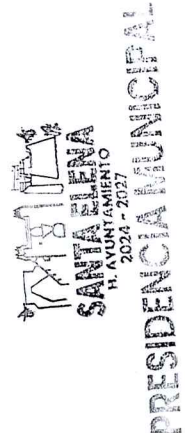 SANTA ELENA
H. AYUNTAMIENTO
2024 - 2027
PRESIDENCIA MUNICIPAL